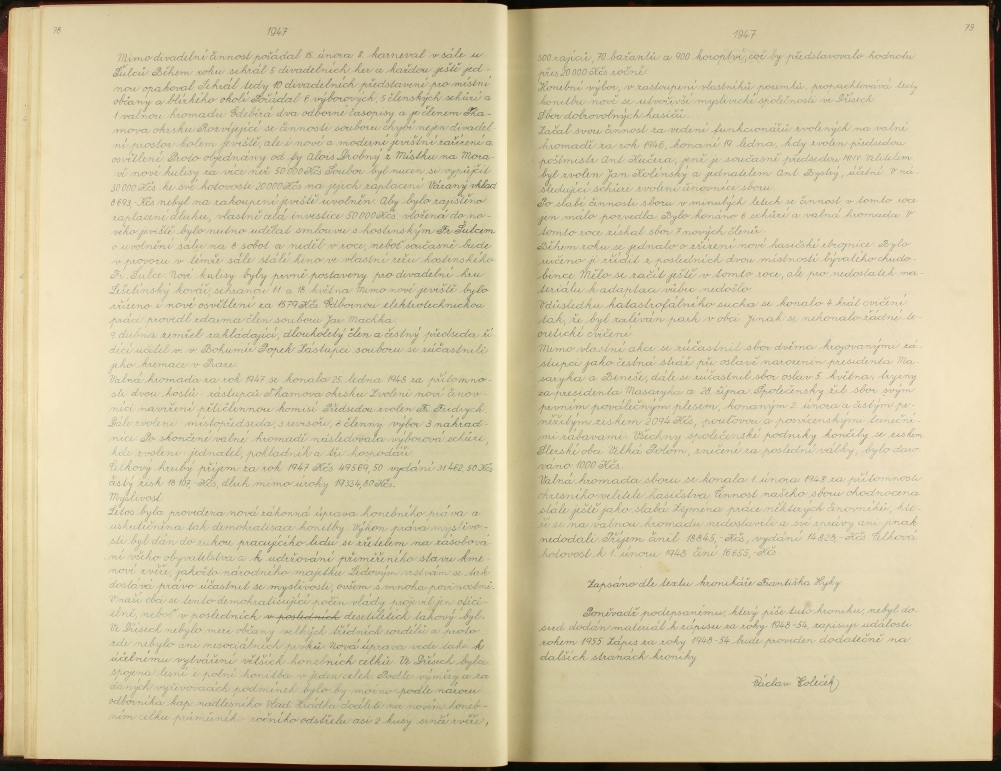 78
1947
Mimo divadelní činnost pořádal 15. února II. karneval v sále u
Šulců. Během roku sehrál 5 divadelních her a každou ještě jed-
nou opakoval. Sehrál tedy 10 divadelních představení pro místní
občany a blízkého okolí. Pořádal 6 výborových, 5 členských schůzí a
1 valnou hromadu. Odebírá dva odborné časopisy a je členem Tha-
mova okrsku. Rozvíjející se činnosti souboru chybí nejen divadel-
ní prostor kolem jeviště, ale i nové a moderní jevištní zařízení a
osvětlení. Proto objednány od fy Alois Drobný z Místku na Mora-
vě nové kulisy za více než 50.000 Kčs. Soubor byl nucen se vypůjčit
30.000 Kčs ke své hotovosti 20.000 Kčs na jejich zaplacení. Vázaný vklad
8.693,- Kčs nebyl na zakoupení jeviště uvolněn. Aby bylo zajištěno
zaplacení dluhu, vlastně celá investice 50.000 Kčs, vložená do no-
vého jeviště, bylo nutno udělat smlouvu s hostinským Fr. Šulcem
o uvolnění sálu na 8 sobot a nedělí v roce, neboť současně bude
v provozu v témže sále stálé kino ve vlastní režii hostinského
Fr. Šulce. Nové kulisy byly prvně postaveny pro divadelní hru
Lešetínský kovář, sehranou 11. a 18. května. Mimo nové jeviště bylo
zřízeno i nové osvětlení za 1579 Kčs. Odbornou elektrotechnickou
práci provedl zdarma člen souboru Jan Machka.
V dubnu zemřel zakládající, dlouholetý člen a čestný předseda ří-
dící učitel v. v. Bohumil Popek. Zástupce souboru se zúčastnili
jeho kremace v Praze.
Valná hromada za rok 1947 se konala 25. ledna 1948 za přítomno-
sti dvou hostů - zástupců Thamova okrsku. Zvoleni noví činov-
níci navržení pětičlennou komisí. Předsedou zvolen Fr. Fridrych.
Dále zvoleni místopředseda, 3 revisoři, 6 členný výbor, 3 náhrad-
níci. Po skončené valné hromadě následovala výborová schůze,
kde zvoleni jednatel, pokladník a tři hospodáři.
Celkový hrubý příjem za rok 1947 Kčs 49.569,50, vydání 31.462,50 Kčs
čistý zisk 18.107,- Kčs, dluh mimo úroky 19.334,80 Kčs.
Myslivost
Letos byla provedena nová zákonná úprava honebního práva a
uskutečněna tak demokratisace honitby. Výkon práva myslivo-
sti byl dán do rukou pracujícího lidu se zřetelem na zásobová-
ní všeho obyvatelstva a k udržování přiměřeného stavu kme-
nové zvěře, jakožto národního majetku. Lidovým vrstvám se tak
dostává právo účastnit se myslivosti, ovšem s mnoha povinnostmi.
V naší obci se tento demokratisující počin vlády projevil jen
ně, neboť v posledních v posledních desetiletích takový byl.
Ve Březech nebylo meze občany velkých třídních rozdílů a proto
zde nebylo ani nesociálních prvků. Nová úprava vede také k
účelnému vytváření větších honebních celků. Ve Březech byla
spojena lesní i polní honitba v jeden celek. Podle výměry a za
daných vyživovacích podmínek bylo by možno podle názoru
odborníka kap. nadlesního Vlad. Hrádka docíliti na novém honeb-
ním celku průměrně ročního odstřelu asi 2 kusy srnčí zvěře,
79
1947
300 zajíců, 70 bažantů a 900 koroptví, což by představovalo hodnotu
přes 20.000 Kčs ročně.
Honební výbor, v zastoupení vlastníků pozemků, propachtovává tedy
honitbu nově se utvořivší myslivecké společnosti ve Březech.
Sbor dobrovolných hasičů.
Začal svou činnost za vedení funkcionářů zvolených na valné
hromadě za rok 1946, konané 19. ledna, kdy zvolen předsedou
poštmistr Ant. Kučera, jenž je současně předsedou MNV. Velitelem
byl zvolen Jan Holínský a jednatelem Ant. Bystrý, účetní. V ná-
sledující schůze zvoleni činovníci sboru.
Po slabé činnosti sboru v minulých letech se činnost v tomto roce
jen málo pozvedla. Bylo konáno 6 schůzí a valná hromada. V
tomto roce získal sbor 7 nových členů.
Během roku se jednalo o zřízení nové hasičské zbrojnice. Bylo
určeno ji zřídit z posledních dvou místností bývalého chudo-
bince. Mělo se začít ještě v tomto roce, ale pro nedostatek ma-
teriálu k adaptaci vůbec nedošlo.
V důsledku katastrofálního sucha se konalo 4 krát cvičení
tak, že byl zaléván park v obci. Jinak se nekonalo žádné te-
oretické cvičení.
Mimo vlastní akce se zúčastnil sbor dvěma krojovanými zá-
stupci jako čestná stráž při oslavě narozenin presidenta Ma-
saryka a Beneše, dále se zúčastnil sbor oslav 5. května, tryzny
za presidenta Masaryka a 28. října. Společensky žil sbor svým
prvním poválečným plesem, konaným 2. února a čistým pe-
něžitým ziskem 2094 Kčs, pouťovou a posvícenskými taneční-
mi zábavami. Všechny společenské podniky končily se ziskem.
Slezské obci Velká Polom, zničené za poslední války, bylo daro-
váno 1000 Kčs.
Valná hromada sboru se konala 1. února 1948 za přítomnosti
okresního velitele hasičstva. Činnost našeho sboru ohodnocena
stále ještě jako slabá. Zejména práce některých činovníků, kte-
ří se na valnou hromadu nedostavili a své zprávy ani jinak
nedodali. Příjem činil 18.845,- Kčs, vydání 14.829,- Kčs. Celková
hotovost k 1. únoru 1948 činí 16.655,- Kčs.
Zapsáno dle textu kronikáře Františka Hyky.
Poněvadž podepsanému, který píše tuto kroniku, nebyl do-
sud dodán materiál k zápisu za roky 1948-54, zapisuji události
rokem 1955. Zápis za roky 1948-54 bude proveden dodatečně na
dalších stranách kroniky.
Václav Holeček